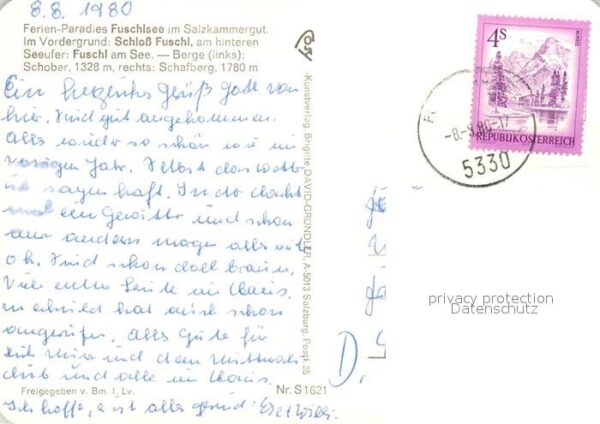 8.8.1980
Ferien-Paradies Fuschlsee im Salzkammergut.
Im Vordergrund: Schloß Fuschl, am hinteren
Seeufer: Fuschl am See. — Berge (links):
Schober, 1328 m, rechts: Schafberg, 1780 m
Ein herzliches Grüß Gott von
hier. Sind gut angekommen.
Alles wieder so schön wie im
vorigen Jahr. Selbst das Wetter
ist sagenhaft. In der Nacht
ein Gewitter und schon
am andern morgen alles
ok. Sind schon doll braun,
Viele nette Leute im Haus.
hat auch schon
angerufen. Alles Gute für
und den
club und alle im Haus.
Freigegeben v. Bm. f. Lv.
Nr. S 1621
Ich hoffe, es ist alles gesund.
Kunstverlag Brigitte DAVID-GRÜNDLER, A-5013 Salzburg, Postf. 35
4S
REPUBLIK ÖSTERREICH
-8.-9.80-17
5330
D.
privacy protection
Datenschutz